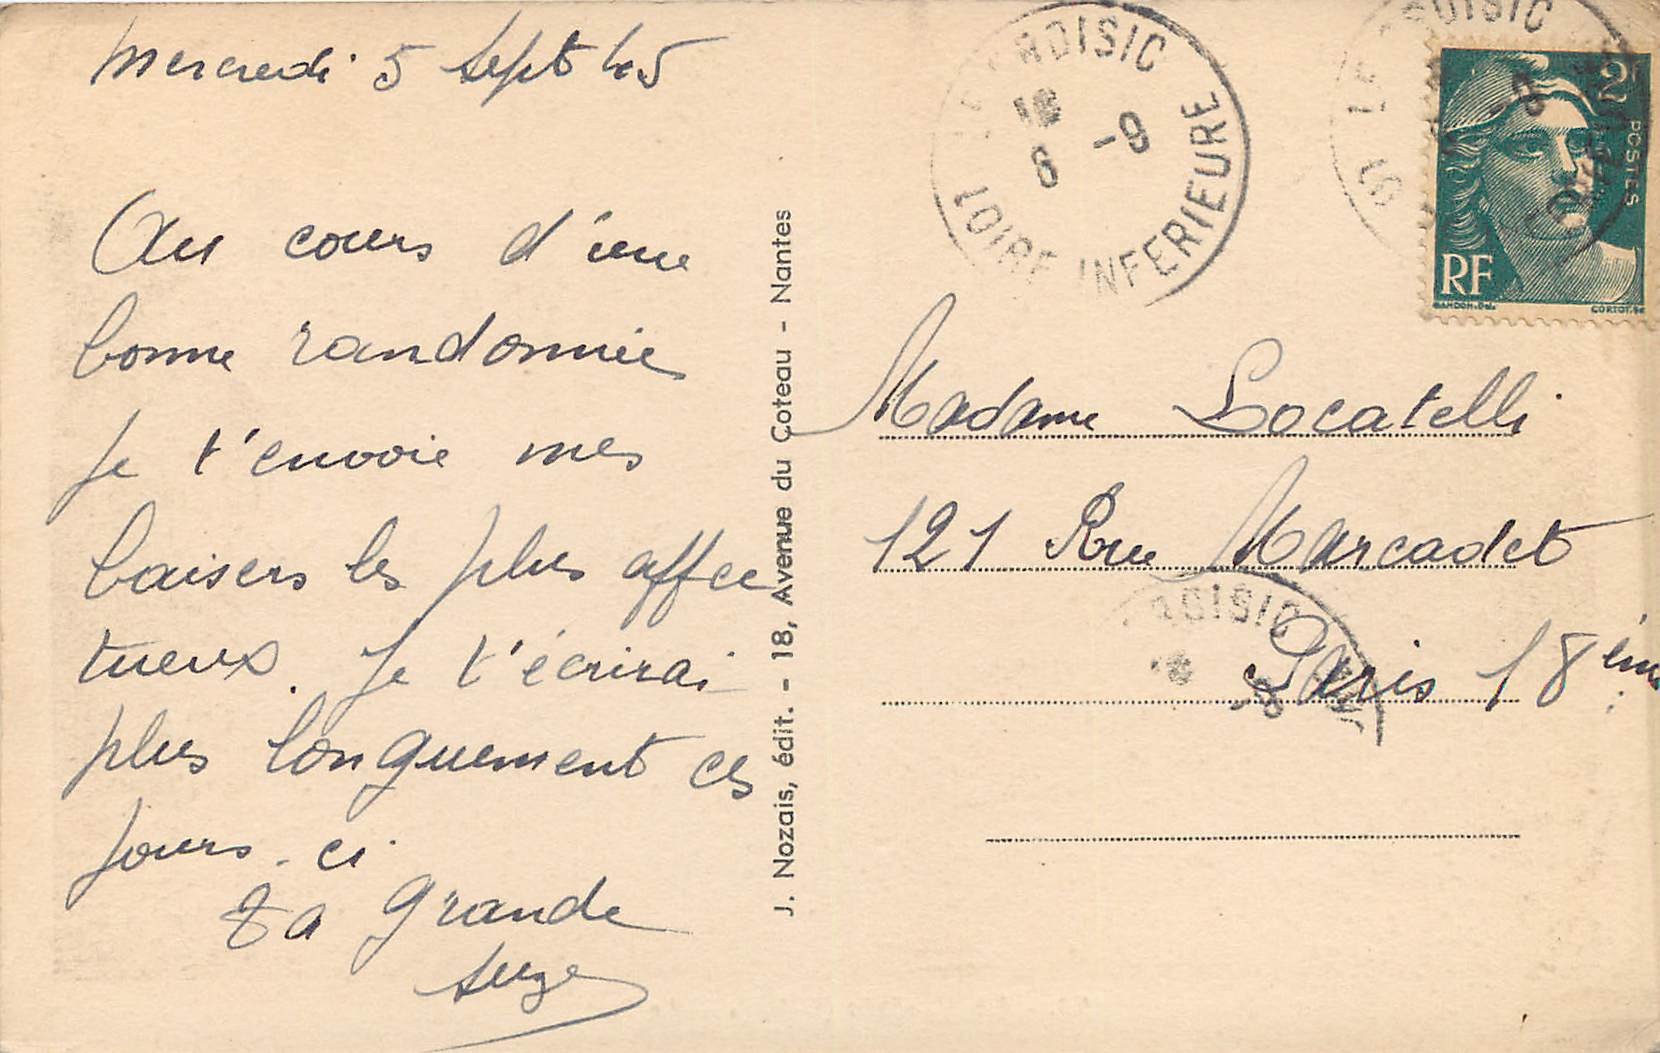 Mercredi 5 Sept 45
Au cours d'une
bonne randonnée
je t'envoie mes
baisers les plus affec
tueux. Je t'écrirai
plus longuement ces
jours-ci
Ta grande
Suze
J. Nozais, édit. - 18, Avenue du Coteau - Nantes
LE CROISIC
18
6 -9
LOIRE INFERIEURE
2F
POSTES
RF
GANDON.Del.
CORTOT.Sc
Madame Locatelli
121 Rue Marcadet
Paris 18ème
ROISIC